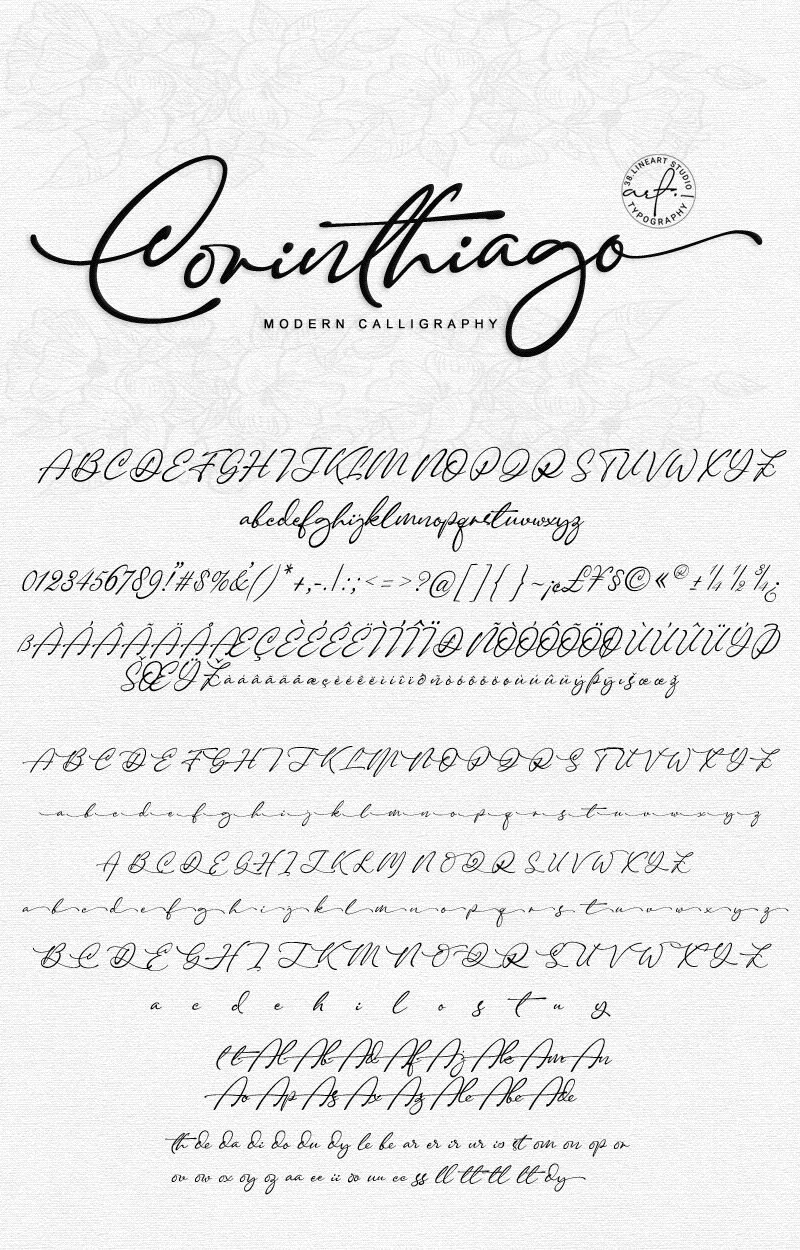 38.LINEART STUDIO
art.
TYPOGRAPHY
Corinthiago
MODERN CALLIGRAPHY
ABCDEFGHIJKLMNOPQRSTUVWXYZ
abcdefghijklmnopqrstuvwxyz
0123456789!"#$%&'()*+,-./:;<=>?@[]{}~¡¢£¥§©«®±¼½¾¿
ßÀÁÂÃÄÅÆÇÈÉÊËÌÍÎÏÐÑÒÓÔÕÖØÙÚÛÜÝÞ
ŠŒŸŽàáâãäåæçèéêëìíîïðñòóôõöøùúûüýþÿıšœœž
A B C D E F G H I J K L M N O P Q R S T U V W X Y Z
a b c d e f g h i j k l m n o p q r s t u v w x y z
A B C D E G H I J K L M N O Q R S U V W X Y Z
a b c d e f g h i j k l m n o p q r s t u v w x y z
B C D E G H I J K M N O Q R S U V W X Y Z
a c d e h i l o s t u y
tt Al Ab Ad Af Az Ake Am An
Ao Ap As Ax Az Ale Abe Ade
th de da di do du dy le be ar er ir ur is st om on op or
ov ow ox oy oz aa ee ii oo uu cc ss ll tt tl lt dy